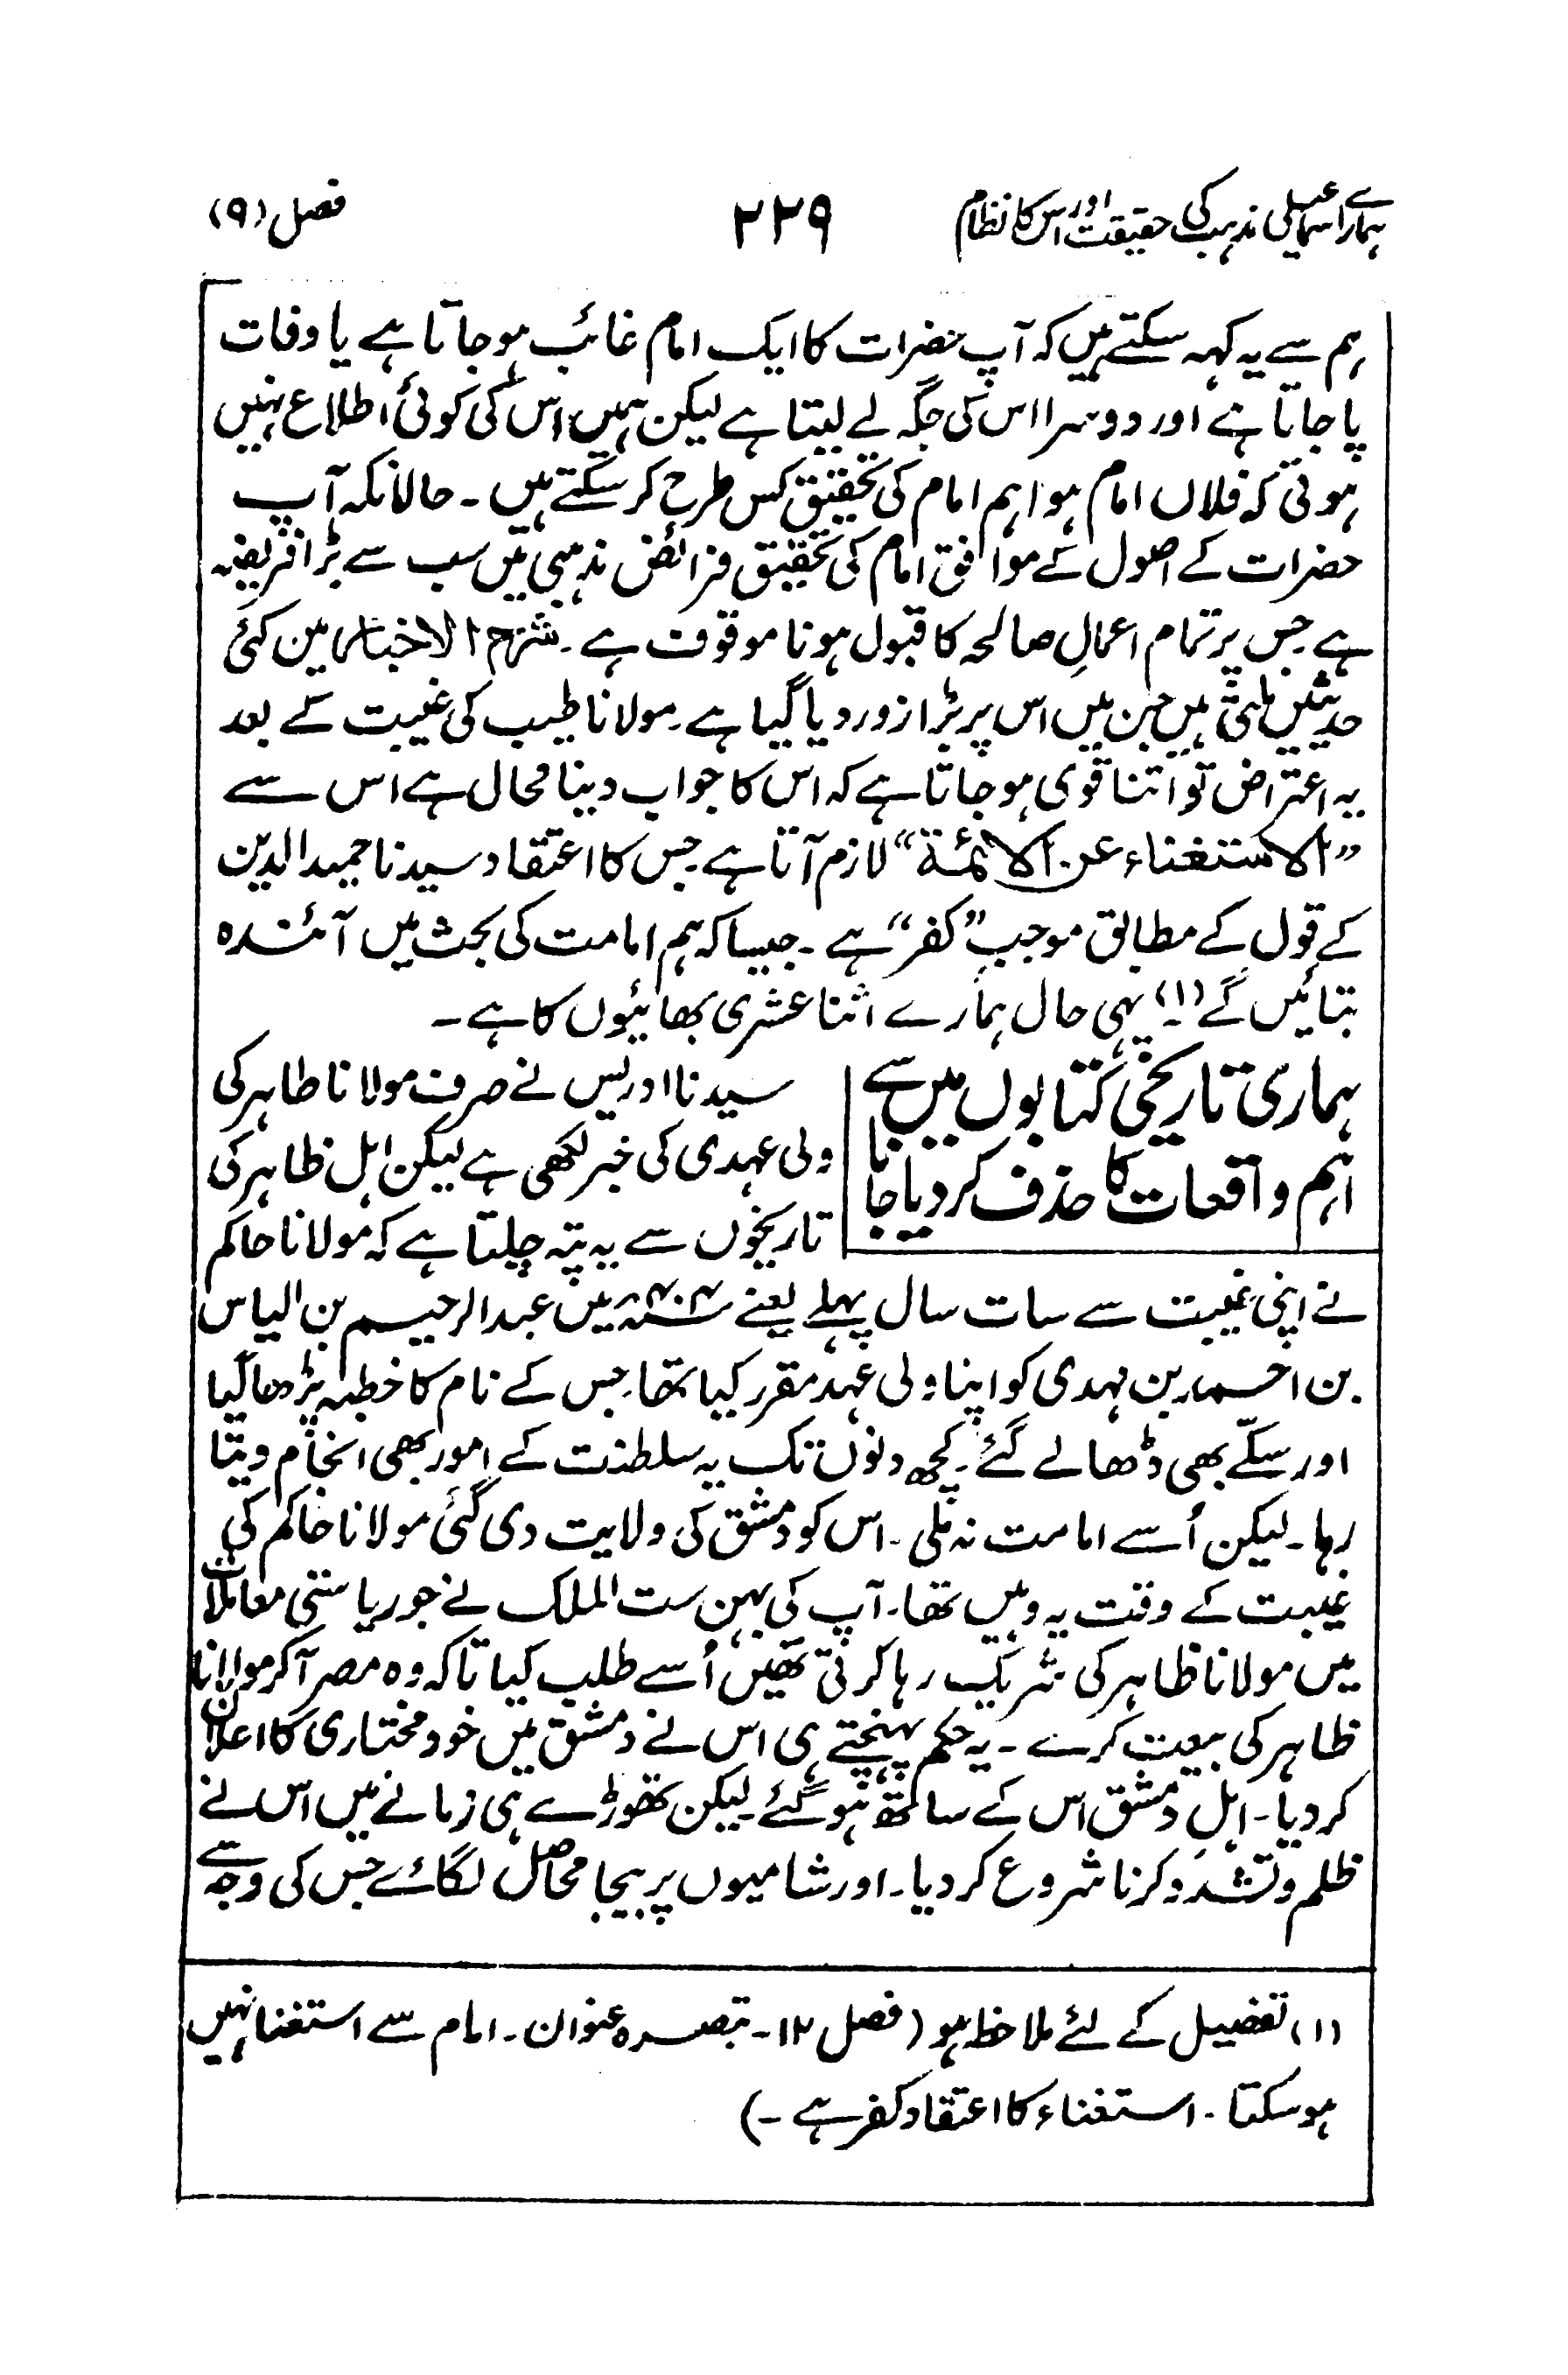 ہمارے اسماعیلی مذہب کی حقیقت اور اس کا نظام ۲۲۹ فصل (۹)
ہم سے یہ کہہ سکتے ہیں کہ آپ حضرات کا ایک امام غائب ہو جاتا ہے یا وفات
پا جاتا ہے اور دوسرا اس کی جگہ لے لیتا ہے لیکن ہمیں اس کی کوئی اطلاع نہیں
ہوتی کہ فلاں امام ہوا ہم امام کی تحقیق کس طرح کر سکتے ہیں ۔ حالانکہ آپ
حضرات کے اصول کے موافق امام کی تحقیق فرائض مذہبی میں سب سے بڑا فریضہ
ہے جس پر تمام اعمالِ صالحہ کا قبول ہونا موقوف ہے ۔ شرح الاخبار میں کئی
حدیثیں ملتی ہیں جن میں اس پر بڑا زور دیا گیا ہے ۔ مولانا طیب کی غیبت کے بعد
یہ اعتراض تو اتنا قوی ہو جاتا ہے کہ اس کا جواب دینا محال ہے اس سے
”الاستغناء عن الائمۃ“ لازم آتا ہے جس کا اعتقاد سیدنا حمید الدین
کے قول کے مطابق موجب ”کفر“ ہے ۔ جیسا کہ ہم امامت کی بحث میں آئندہ
بتائیں گے (۱) یہی حال ہمارے اثنا عشری بھائیوں کا ہے ۔
ہماری تاریخی کتابوں میں سے
اہم واقعات کا حذف کر دیا جانا
سیدنا ادریس نے صرف مولانا ظاہر کی
ولی عہدی کی خبر لکھی ہے لیکن اہل ظاہر کی
تاریخوں سے یہ پتہ چلتا ہے کہ مولانا حاکم
نے اپنی غیبت سے سات سال پہلے یعنے ۴۰۴ھ میں عبد الرحیم بن الیاس
بن احمد بن مہدی کو اپنا ولی عہد مقرر کیا تھا ۔ جس کے نام کا خطبہ پڑھا گیا
اور سکّے بھی ڈھالے گئے ۔ کچھ دنوں تک یہ سلطنت کے امور بھی انجام دیتا
رہا ۔ لیکن اُسے امامت نہ ملی ۔ اس کو دمشق کی ولایت دی گئی مولانا حاکم کی
غیبت کے وقت یہ وہیں تھا ۔ آپ کی بہن ست الملک نے جو ریاستی معاملات
میں مولانا ظاہر کی شریک رہا کرتی تھیں اُسے طلب کیا تاکہ وہ مصر آکر مولانا
ظاہر کی بیعت کرے ۔ یہ حکم پہنچتے ہی اس نے دمشق میں خود مختاری کا اعلان
کر دیا ۔ اہلِ دمشق اس کے ساتھ ہو گئے ۔ لیکن تھوڑے ہی زمانے میں اس نے
ظلم و تشدد کرنا شروع کر دیا ۔ اور شامیوں پر بیجا محاصل لگائے جس کی وجہ سے
(۱) تفصیل کے لئے ملاحظہ ہو (فصل ۱۲ ۔ تبصرہ عنوان ۔ امام سے استغنا نہیں
ہو سکتا ۔ استغناء کا اعتقاد کفر ہے ۔)